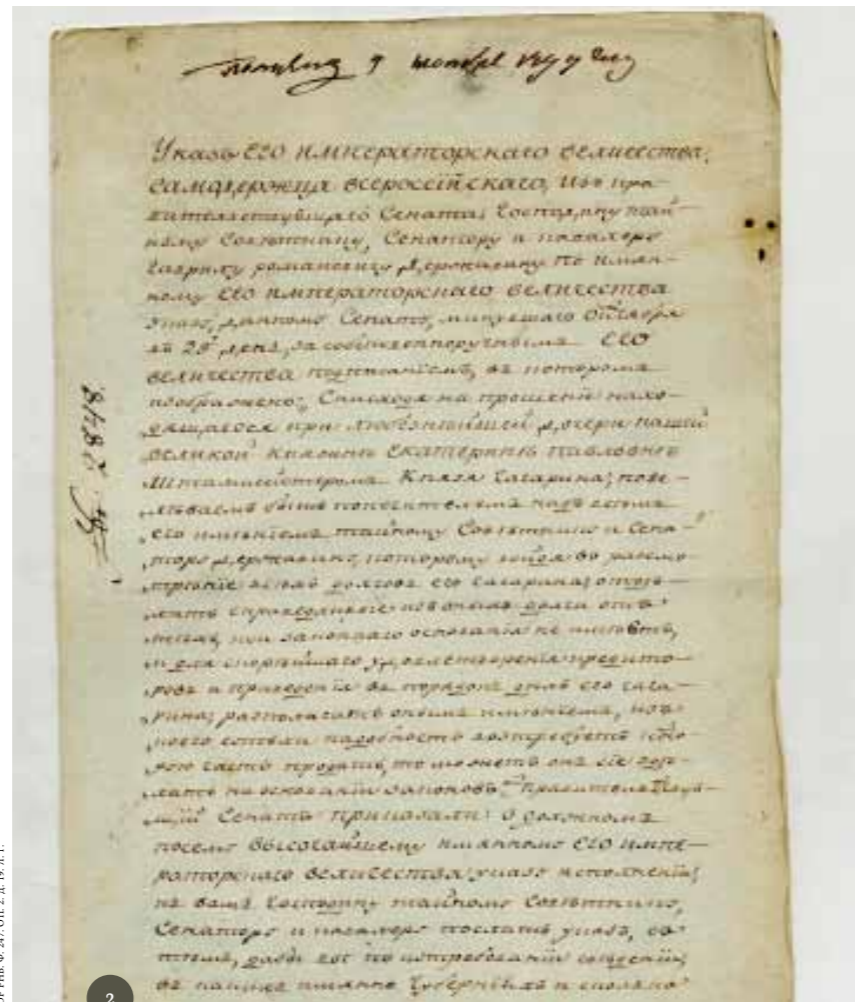 9 ноября 1799 году
Указъ ЕГО ИМПЕРАТОРСКАГО ВЕЛИЧЕСТВА,
САМОДЕРЖЦА ВСЕРОССІЙСКАГО, Изъ пра-
вительствующаго Сената, Господину тай-
ному Совѣтнику, Сенатору и кавалеру
Гаврилу романовичу державину По имян-
ному ЕГО ИМПЕРАТОРСКАГО ВЕЛИЧЕСТВА
указу, данному Сенату, минувшаго Октября
въ 25й день, за собственноручнымъ ЕГО
ВЕЛИЧЕСТВА подписаніемъ, въ которомъ
изображено: Снисходя на прошеніи нахо-
дящагося при любезнѣйшей дочери нашей
великой Княжнѣ Екатеринѣ Павловнѣ
Шталмейстеромъ Князя Гагарина; пове-
лѣваемъ быть попечителемъ надъ всемъ
его имѣніемъ тайному Совѣтнику и Сена-
тору державину, которому войдя во разсмо-
трѣніе всѣхъ долговъ его Гагарина;
справедливые изъ оныхъ долги отъ
кои законнаго основанія не имѣютъ,
и для скорѣйшаго удовлетворенія кредито-
ровъ и приведенія въ порядокъ дѣлъ его Гага-
рина; располагать онымъ имѣніемъ,
надобность
часть продать, то можетъ онъ сіе здѣ-
лать на основаніи законовъ. Правительствую-
щій Сенатъ приказали: О должномъ
посему Высочайшему имянному ЕГО ИМПЕ-
РАТОРСКАГО ВЕЛИЧЕСТВА указу исполненіи,
къ вамъ Господину тайному Совѣтнику,
Сенатору и кавалеру послать указъ, съ
тѣмъ, дабы
въ какихъ имянно Губерніяхъ и сколько
8478
2
ОР РНБ. Ф. 247. Оп. 2. Д. 19. Л. 1.